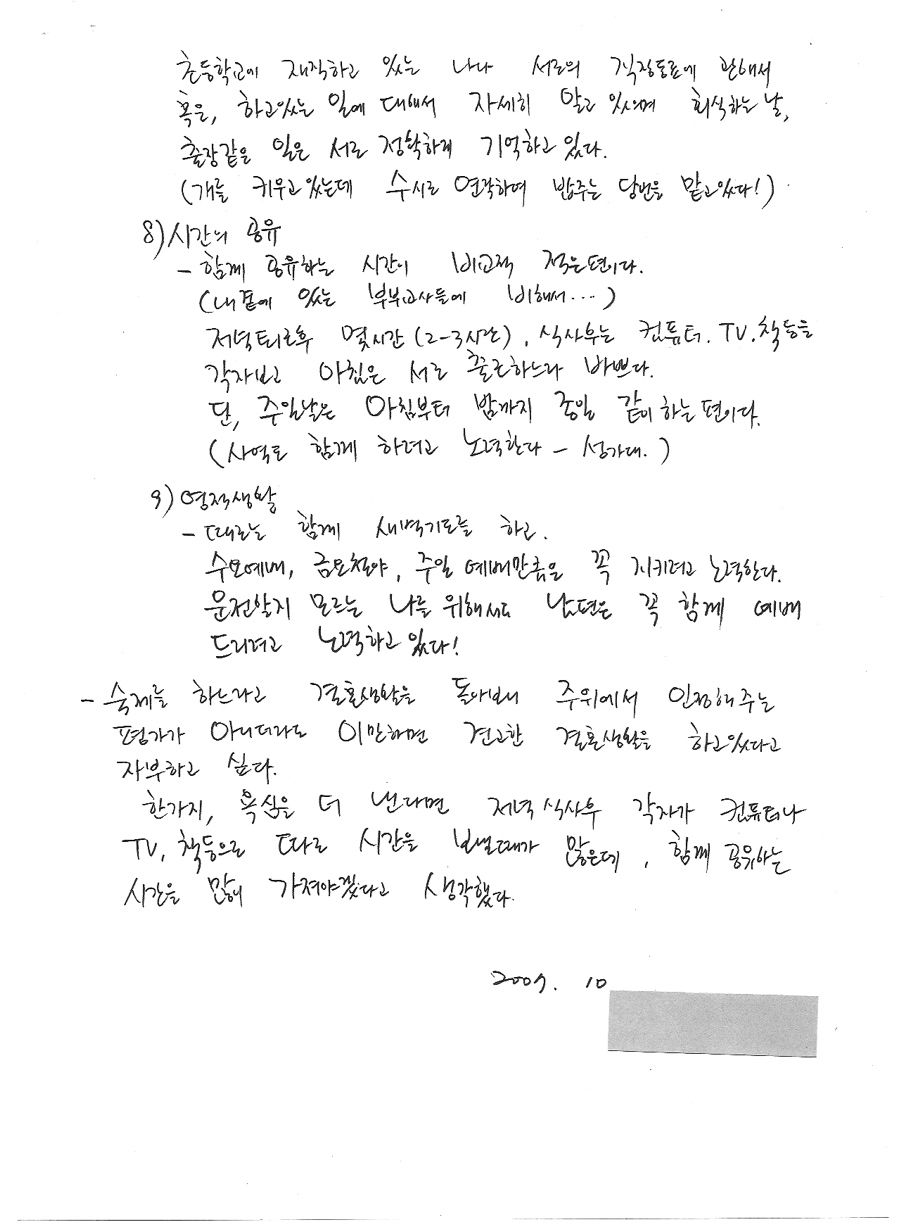 초등학교에 재직하고 있는 나나 서로의 직장동료에 관해서
혹은, 하고있는 일에 대해서 자세히 알고 있으며 회식하는 날,
출장같은 일은 서로 정확하게 기억하고 있다.
(개를 키우고 있는데 수시로 연락하여 밥주는 당번을 맡고있다!)
8) 시간의 공유
- 함께 공유하는 시간이 비교적 적은편이다.
(내 곁에 있는 부부교사들에 비해서...)
저녁퇴근후 몇시간 (2-3시간), 식사후는 컴퓨터. TV. 책등을
각자보고 아침은 서로 출근하느라 바쁘다.
단, 주일날은 아침부터 밤까지 종일 같이 하는 편이다.
(사역도 함께 하려고 노력한다 - 성가대.)
9) 영적생활
- 때로는 함께 새벽기도를 하고.
수요예배, 금요철야, 주일 예배만큼은 꼭 지키려고 노력한다.
운전할지 모르는 나를 위해서도 남편은 꼭 함께 예배
드리려고 노력하고 있다!
- 숙제를 하느라고 결혼생활을 돌아보니 주위에서 인정해주는
평가가 아니더라도 이만하면 견고한 결혼생활을 하고있다고
자부하고 싶다.
한가지, 욕심을 더 낸다면 저녁 식사후 각자가 컴퓨터나
TV, 책등으로 따로 시간을 보낼때가 많은데, 함께 공유하는
시간을 많이 가져야겠다고 생각했다.
2009. 10